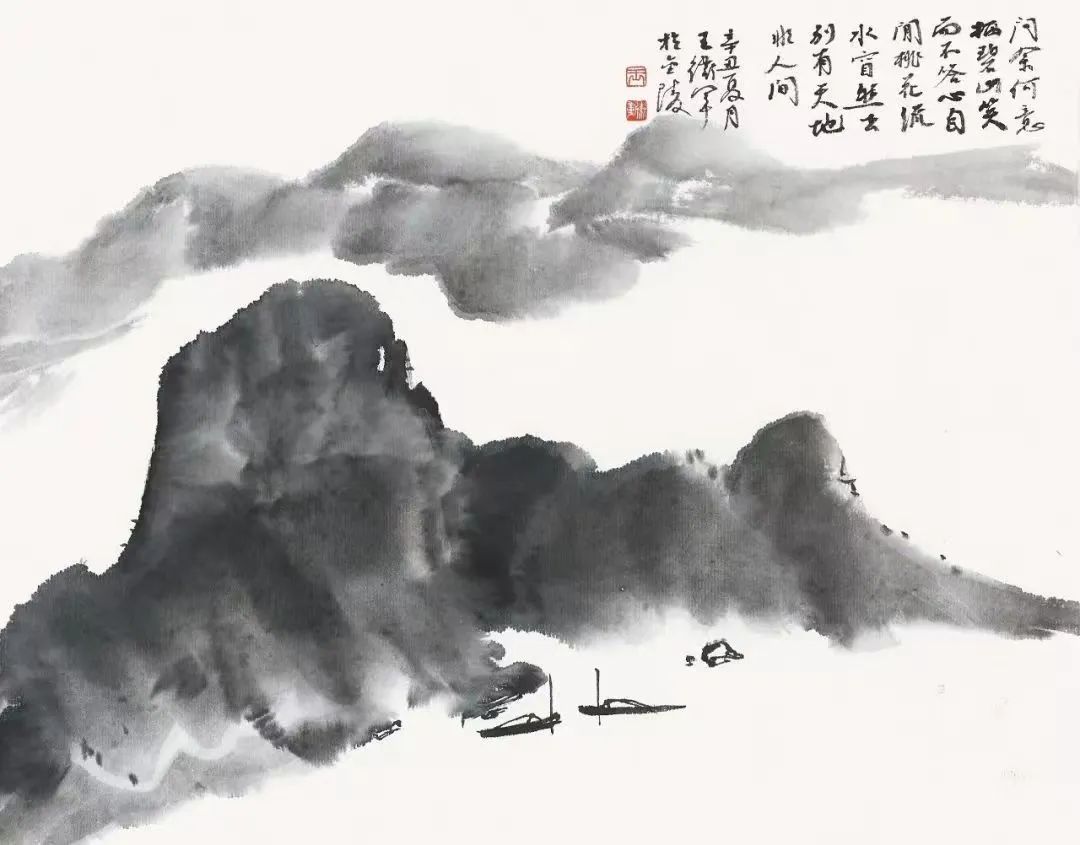 问余何意
栖碧山笑
而不答心自
闲桃花流
水窅然去
别有天地
非人间
辛丑夏月
王衛军
於金陵